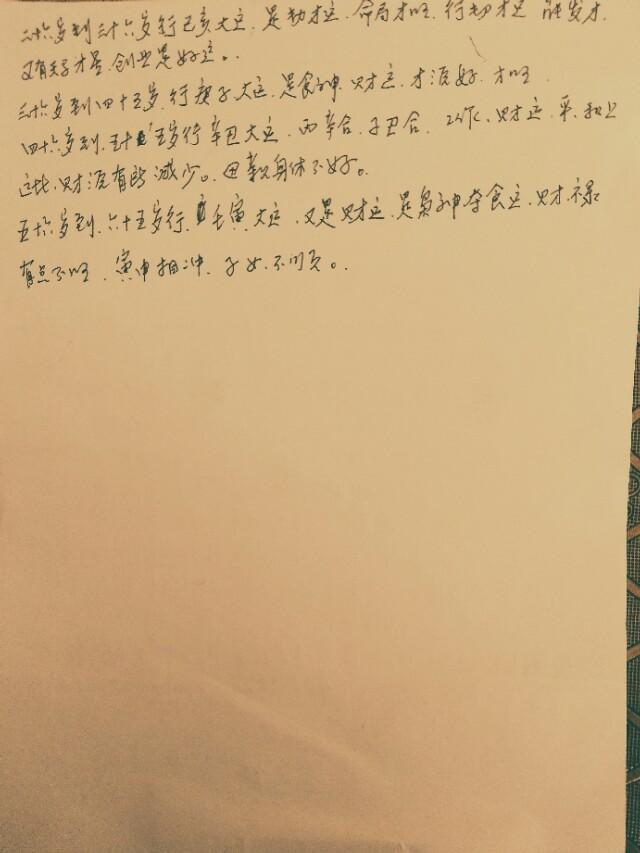 二十六岁到三十六岁行己亥大运，是劫才运，命局才旺，行劫才运 能发才
又有天才星，创业是好运。
三十六岁到四十五岁，行庚子大运，是食神 财运，才源好，才旺
四十六岁到，五十五岁行辛丑大运，丙辛合，子丑合，工作，财运，平，和上
这比，财源有所减少。母亲身体不好。
五十六岁到，六十五岁行，壬寅大运，又是财运，是枭神夺食运，财禄
有点不旺，寅申相冲，子女，不问。